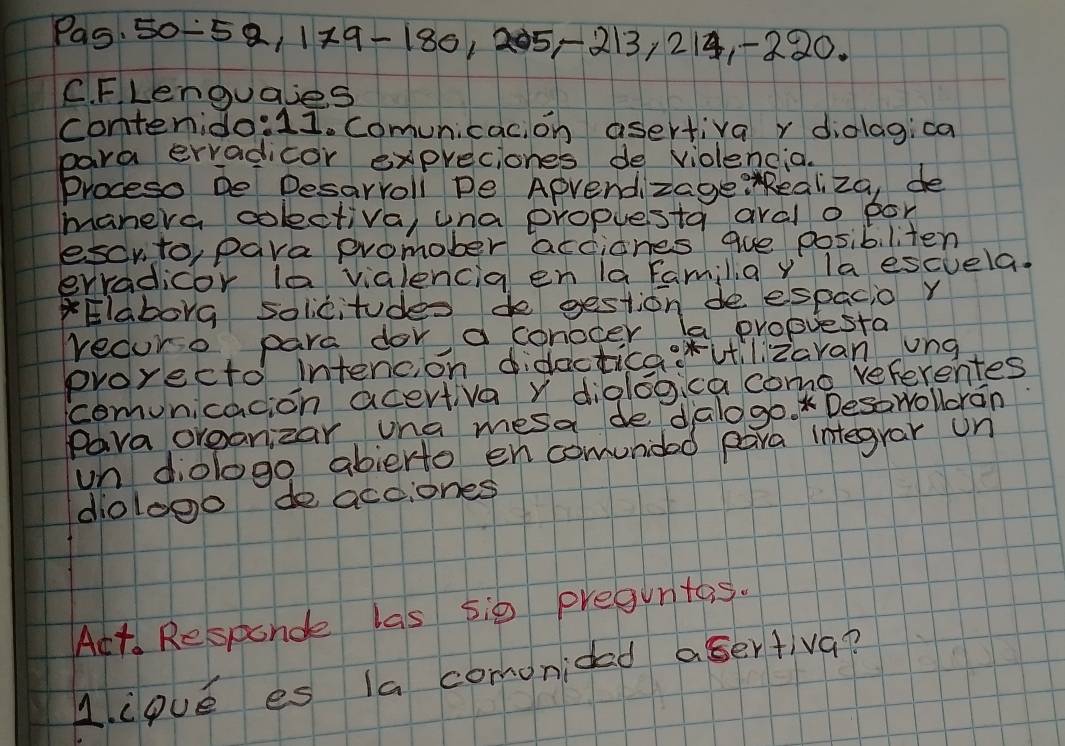 Pag. 50-52, 179-180, 205,-213, 214,-220.
C.F. Lenguajes
contenido: 11. comunicación asertiva y diolagica
para erradicor expreciones de violencia.
Proceso De Desarroll De Aprendizage:*Realiza, de
manera colectiva, una propuesta aral o por
escrito, para promober acciones que posibiliten
erradicor la vialencia en la Familia y la escuela.
*Elabora solicitudes de gestión de espacio y
recurso para dor a conocer la propuesta
proyecto intención didactica:*utilizaran una
comunicación acertiva y diológica como referentes
para organizar una mesa de dialogo.*Desarrolloran
un diologo abierto en comunidad para integrar un
diologo de acciones
Act. Responde las sig preguntas.
1.¿Qué es la comonidad asertiva?